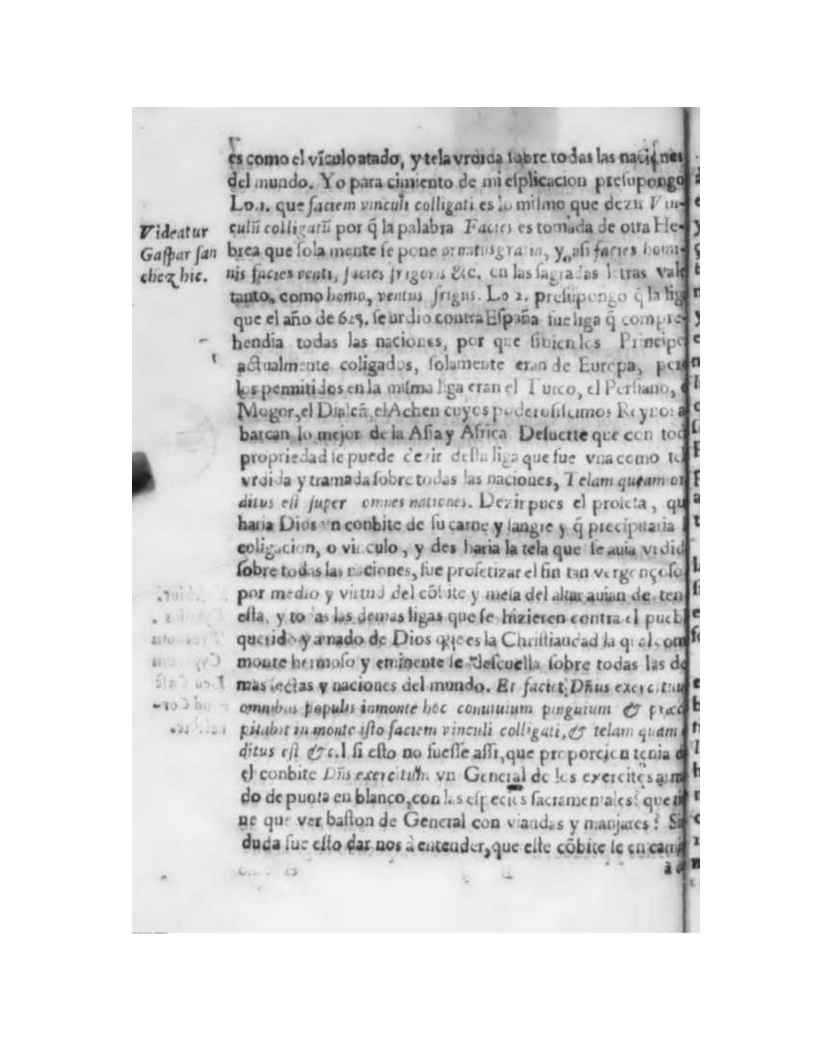 es como el vĩculo atado, y tela vrdida sobre todas las naciones
del mundo. Yo para cimiento de mi esplicacion presupongo
Lo.1. que faciem vinculi colligati es lo mismo que dezir Vin-
culũ colligatũ por q̃ la palabra Facies es tomada de otra He-
Videatur
Gaspar san
chez hic.
brea que sola mente se pone ornatus gratia, y asi facies homi-
nis facies venti, facies frigoris &c. en las sagradas letras vale
tanto, como homo, ventus frigus. Lo 2. presupongo q̃ la liga
que el año de 625. se urdio contra España fue liga q̃ compre-
hendia todas las naciones, por que si bien los Principe
actualmente coligados, solamente eran de Europa, pero
los permitidos en la misma liga eran el Turco, el Persiano,
Mogor, el Dialcã, el Achen cuyos poderosissimos Reynos a
barcan lo mejor de la Asia y Africa Desuerte que con tod
propriedad se puede dezir desta liga que fue vna como te
vrdida y tramada sobre todas las naciones, Telam quam or
ditus est super omnes nationes. Dezir pues el profeta, qu
haria Dios vn conbite de su carne y sangre y q̃ precipitaria
coligacion, o vinculo, y des haria la tela que se auia vrdid
sobre todas las naciones, fue profetizar el fin tan vergonçoso
por medio y virtud del cõbite y mesa del altar auian de ten
esta, y todas las demas ligas que se hizieren contra el puebl
querido y amado de Dios que es la Christiandad la qual com
monte hermoso y eminente se descuella sobre todas las de
mas sectas y naciones del mundo. Et faciet Dñus exercituu
omnibus populis in monte hoc conuiuium pinguium & præci
pitabit in monte isto faciem vinculi colligati, & telam quam
ditus est &c. I si esto no fuesse assi, que proporcion tenia
el conbite Dñs exercituũ. vn General de los exercitos arma
do de punta en blanco, con las especies sacramentales? que ti
ne que ver baston de General con viandas y manjares? Si
duda fue esto dar nos à entender, que este cõbite se en cami